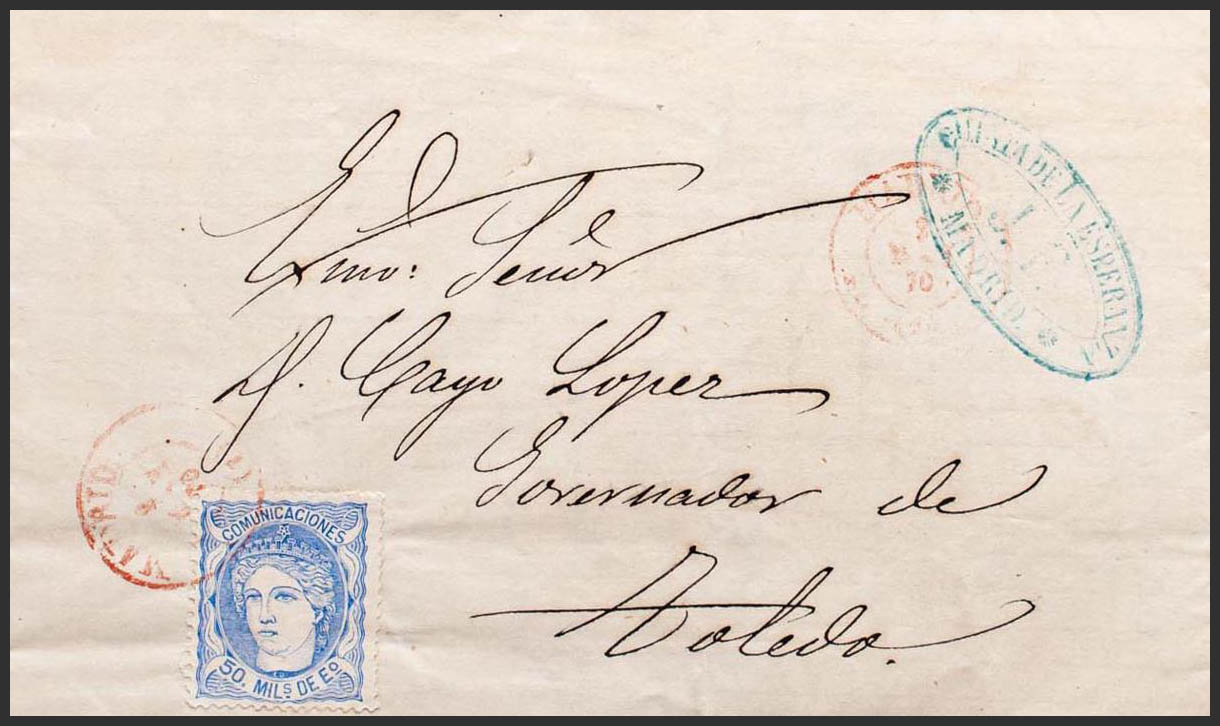 Exmo: Señor
D. Cayo Lopez
Governador de
Toledo.
DE LA ESPERANZA
* MADRID. *
70
MADRID
COMUNICACIONES
50. MILS DE EO